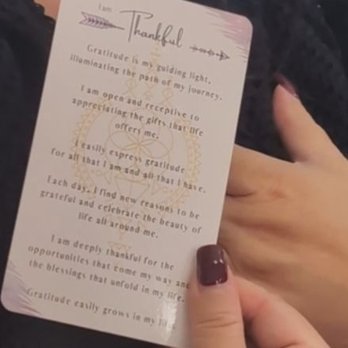 I am
Thankful
Gratitude is my guiding light,
illuminating the path of my journey.
I am open and receptive to
appreciating the gifts that life
offers me.
I easily express gratitude
for all that I am and all that I have.
Each day, I find new reasons to be
grateful and celebrate the beauty of
life all around me.
I am deeply thankful for the
opportunities that come my way and
the blessings that unfold in my life.
Gratitude easily grows in my